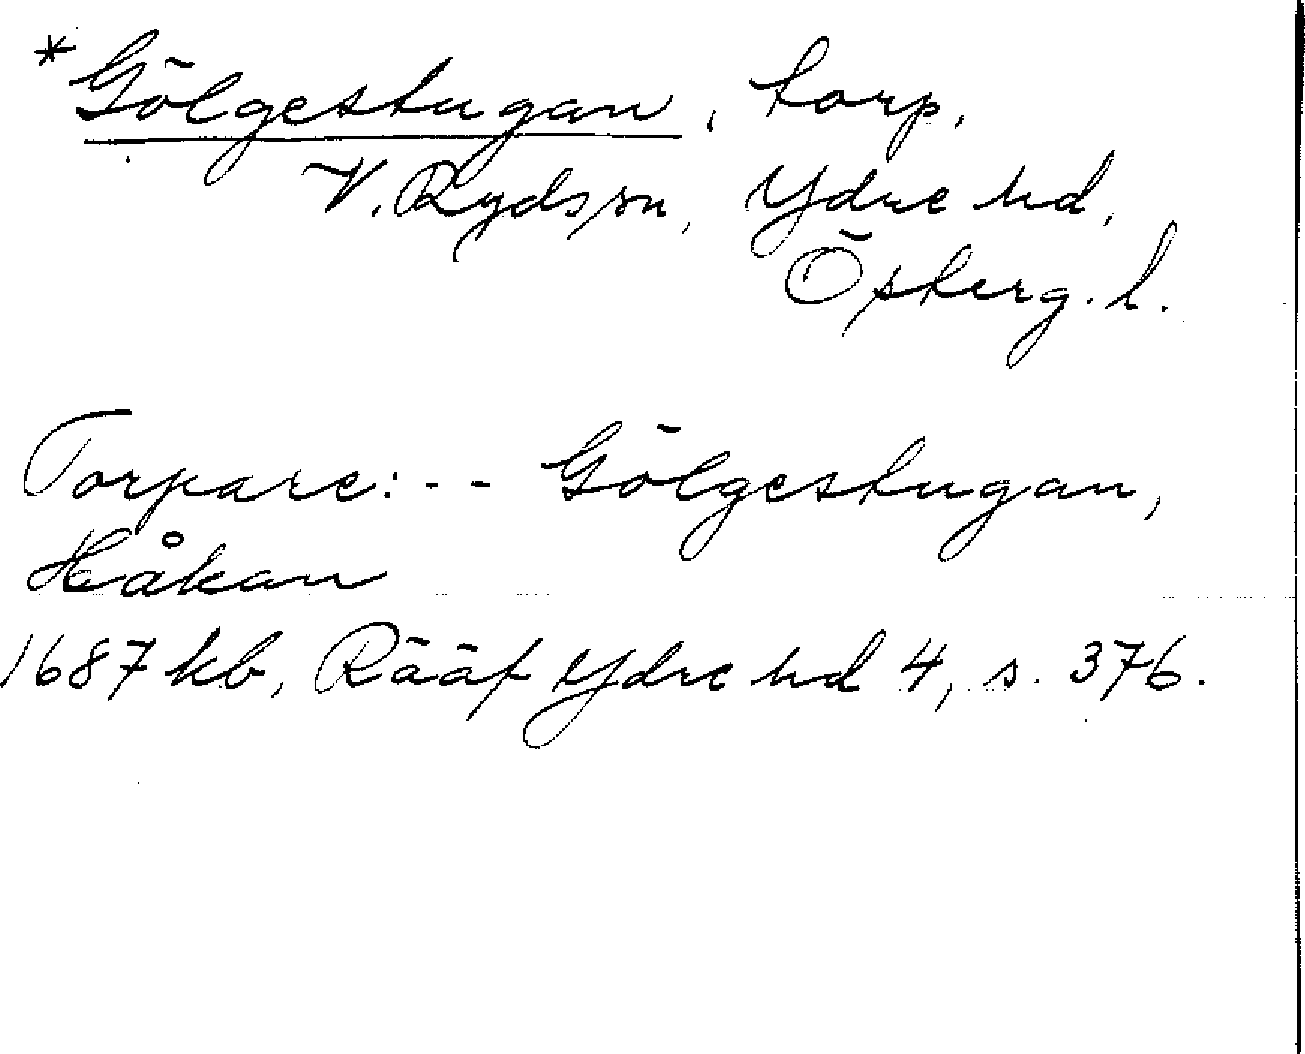 *Gölgestugan, torp,
V. Ryds sn, Ydre hd,
Österg. l.
Torpare: -- Gölgestugan,
Håkan
1687 kb, Rääf Ydre hd 4, s. 376.